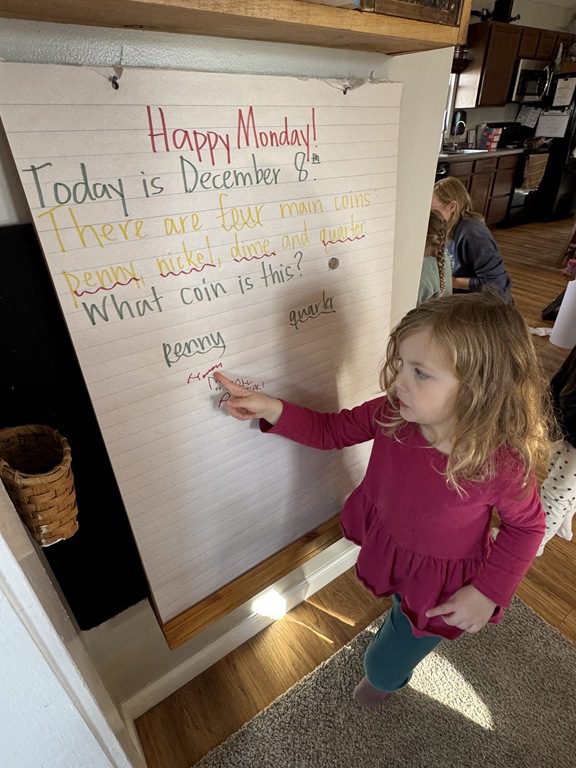 Happy Monday!
Today is December 8th.
There are four main coins:
penny, nickel, dime and quarter
What coin is this?
penny
quarter